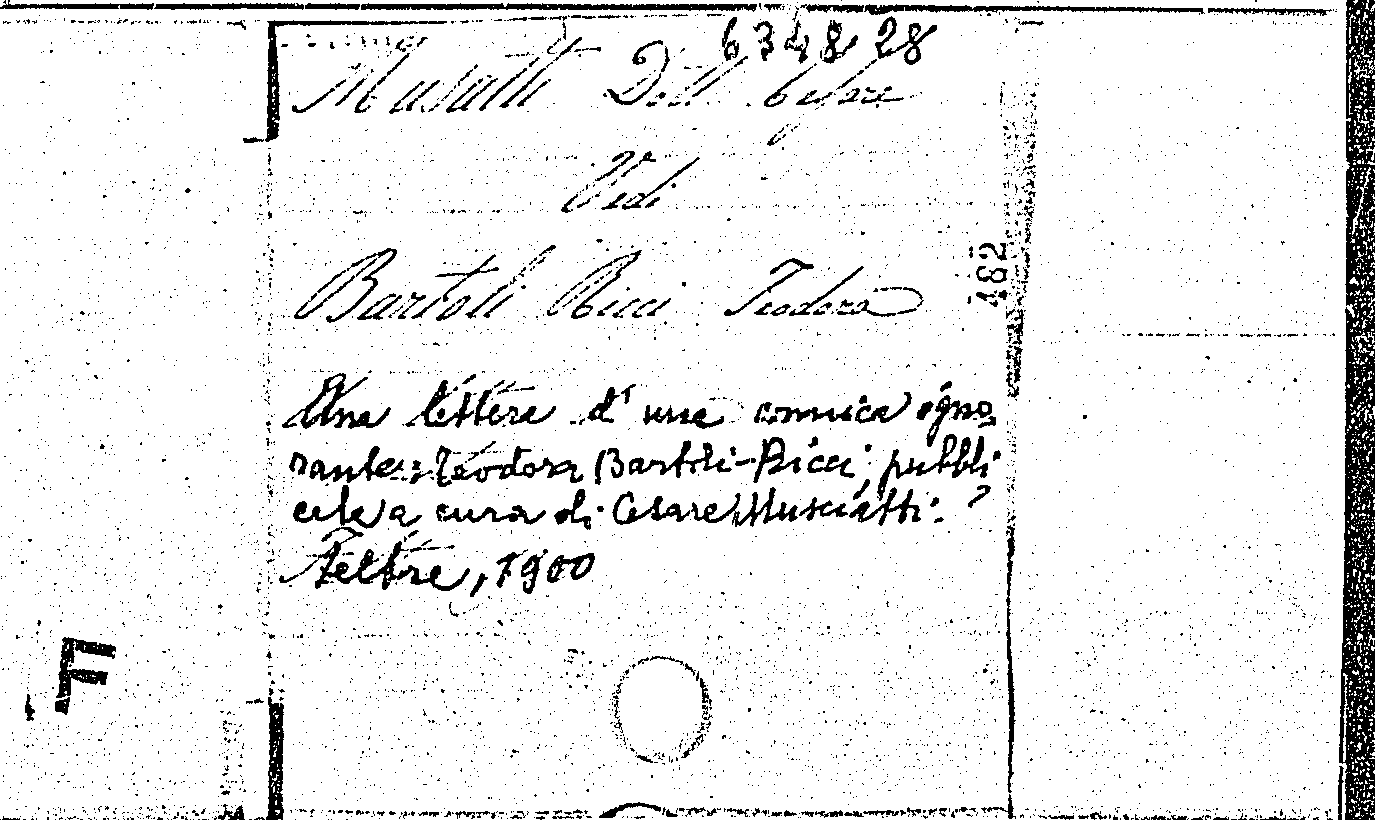 6348 28
Musatti Dott. Cesare
Vedi
Bartoli Ricci Teodora
482
Una lettera d'una comica igno-
rante: Teodora Bartoli-Ricci, pubbli-
cata a cura di Cesare Musciatti.
Feltre, 1900
F